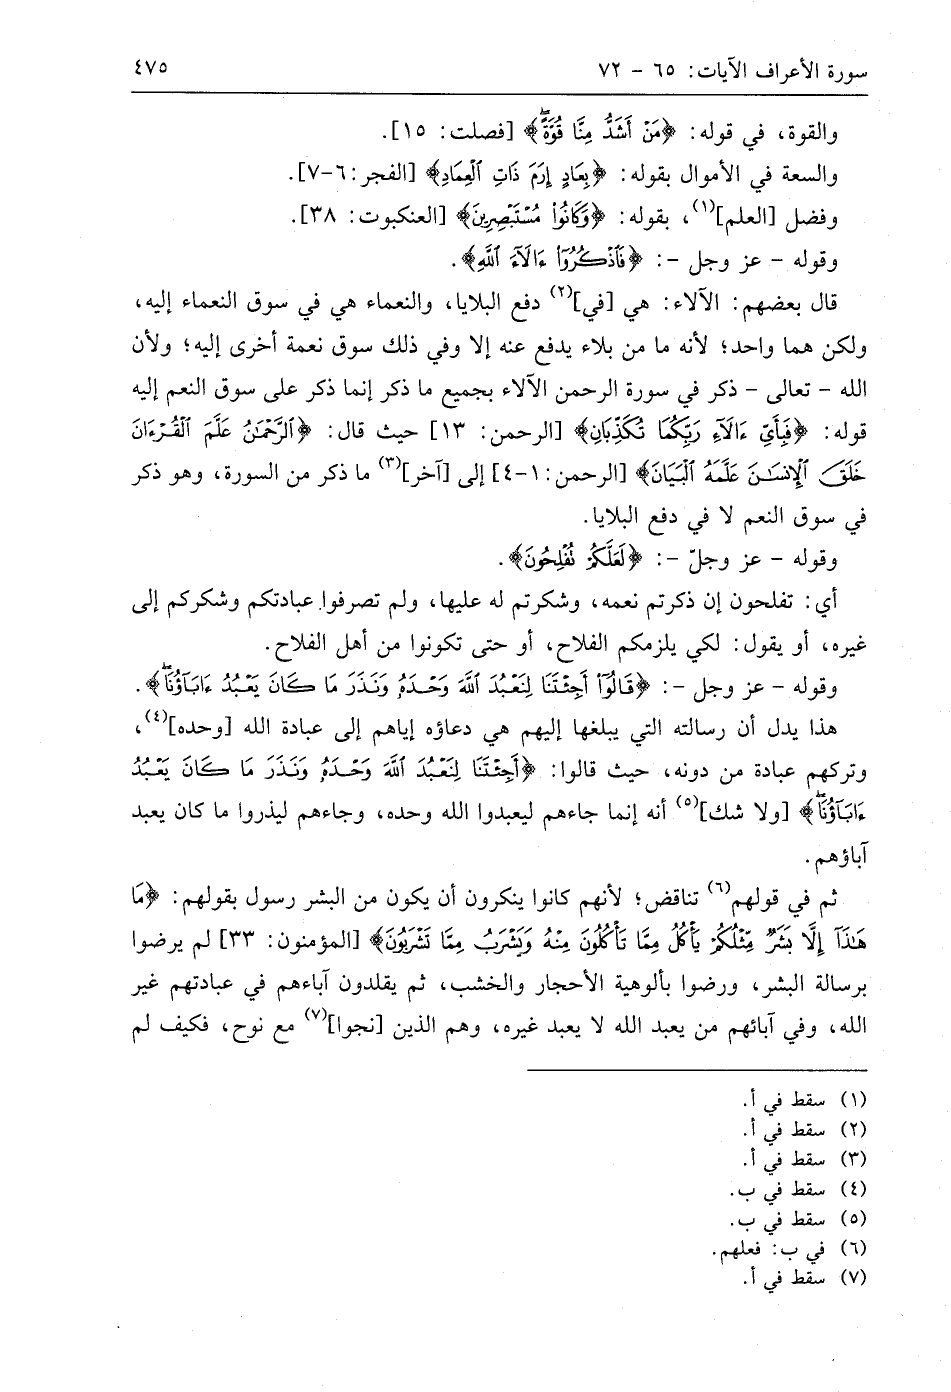 سورة الأعراف الآيات: ٦٥ - ٧٢
٤٧٥
والقوة، في قوله: ﴿مَنْ أَشَدُّ مِنَّا قُوَّةً﴾ [فصلت: ١٥].
والسعة في الأموال بقوله: ﴿بِعَادٍ إِرَمَ ذَاتِ ٱلْعِمَادِ﴾ [الفجر: ٦-٧].
وفضل [العلم](١)، بقوله: ﴿وَكَانُوا۟ مُسْتَبْصِرِينَ﴾ [العنكبوت: ٣٨].
وقوله - عز وجل -: ﴿فَٱذْكُرُوٓا۟ ءَالَآءَ ٱللَّهِ﴾.
قال بعضهم: الآلاء: هي [في](٢) دفع البلايا، والنعماء هي في سوق النعماء إليه،
ولكن هما واحد؛ لأنه ما من بلاء يدفع عنه إلا وفي ذلك سوق نعمة أخرى إليه؛ ولأن
الله - تعالى - ذكر في سورة الرحمن الآلاء بجميع ما ذكر إنما ذكر على سوق النعم إليه
قوله: ﴿فَبِأَيِّ ءَالَآءِ رَبِّكُمَا تُكَذِّبَانِ﴾ [الرحمن: ١٣] حيث قال: ﴿ٱلرَّحْمَٰنُ عَلَّمَ ٱلْقُرْءَانَ
خَلَقَ ٱلْإِنسَٰنَ عَلَّمَهُ ٱلْبَيَانَ﴾ [الرحمن: ١-٤] إلى [آخر](٣) ما ذكر من السورة، وهو ذكر
في سوق النعم لا في دفع البلايا.
وقوله - عز وجلّ -: ﴿لَعَلَّكُمْ تُفْلِحُونَ﴾.
أي: تفلحون إن ذكرتم نعمه، وشكرتم له عليها، ولم تصرفوا عبادتكم وشكركم إلى
غيره، أو يقول: لكي يلزمكم الفلاح، أو حتى تكونوا من أهل الفلاح.
وقوله - عز وجل -: ﴿قَالُوٓا۟ أَجِئْتَنَا لِنَعْبُدَ ٱللَّهَ وَحْدَهُۥ وَنَذَرَ مَا كَانَ يَعْبُدُ ءَابَآؤُنَا﴾.
هذا يدل أن رسالته التي يبلغها إليهم هي دعاؤه إياهم إلى عبادة الله [وحده](٤)،
وتركهم عبادة من دونه، حيث قالوا: ﴿أَجِئْتَنَا لِنَعْبُدَ ٱللَّهَ وَحْدَهُۥ وَنَذَرَ مَا كَانَ يَعْبُدُ
ءَابَآؤُنَا﴾ [ولا شك](٥) أنه إنما جاءهم ليعبدوا الله وحده، وجاءهم ليذروا ما كان يعبد
آباؤهم.
ثم في قولهم(٦) تناقض؛ لأنهم كانوا ينكرون أن يكون من البشر رسول بقولهم: ﴿مَا
هَٰذَآ إِلَّا بَشَرٌ مِّثْلُكُمْ يَأْكُلُ مِمَّا تَأْكُلُونَ مِنْهُ وَيَشْرَبُ مِمَّا تَشْرَبُونَ﴾ [المؤمنون: ٣٣] لم يرضوا
برسالة البشر، ورضوا بألوهية الأحجار والخشب، ثم يقلدون آباءهم في عبادتهم غير
الله، وفي آبائهم من يعبد الله لا يعبد غيره، وهم الذين [نجوا](٧) مع نوح، فكيف لم
(١) سقط في أ.
(٢) سقط في أ.
(٣) سقط في أ.
(٤) سقط في ب.
(٥) سقط في ب.
(٦) في ب: فعلهم.
(٧) سقط في أ.